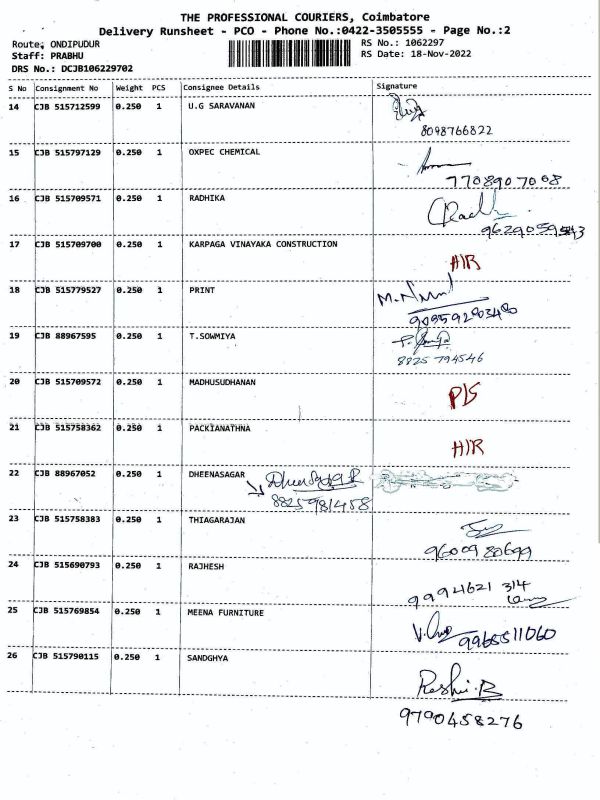 THE PROFESSIONAL COURIERS, Coimbatore
Delivery Runsheet - PCO - Phone No.:0422-3505555 - Page No.:2
Route: ONDIPUDUR
RS No.: 1062297
Staff: PRABHU
RS Date: 18-Nov-2022
DRS No.: DCJB106229702
S No Consignment No Weight PCS Consignee Details Signature
14 CJB 515712599 0.250 1 U.G SARAVANAN
8098766822
15 CJB 515797129 0.250 1 OXPEC CHEMICAL
7708907008
16 CJB 515709571 0.250 1 RADHIKA
17 CJB 515709700 0.250 1 KARPAGA VINAYAKA CONSTRUCTION
H/R
18 CJB 515779527 0.250 1 PRINT
19 CJB 88967595 0.250 1 T.SOWMIYA
8825 794546
20 CJB 515709572 0.250 1 MADHUSUDHANAN
P/S
21 CJB 515758362 0.250 1 PACKIANATHNA
H/R
22 CJB 88967052 0.250 1 DHEENASAGAR
8825981458
23 CJB 515758383 0.250 1 THIAGARAJAN
9600980699
24 CJB 515690793 0.250 1 RAJHESH
9994621 314
25 CJB 515769854 0.250 1 MEENA FURNITURE
9965511060
26 CJB 515790115 0.250 1 SANDGHYA
Reshi.B
9790458276